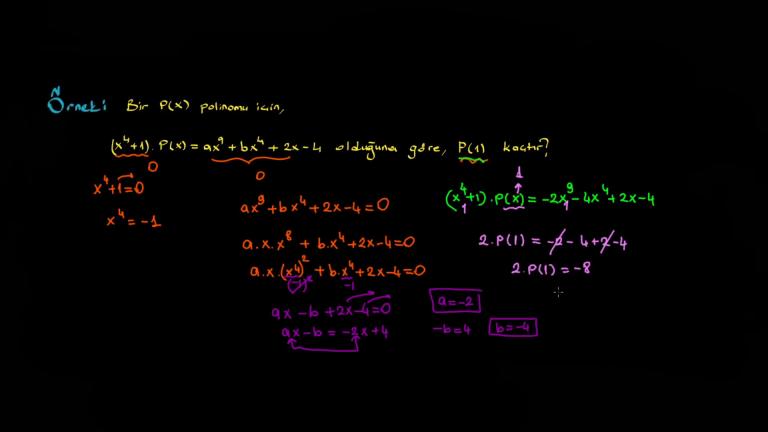 Örnek: Bir P(x) polinomu için,
(x⁴+1).P(x) = ax⁹+bx⁴+2x-4 olduğuna göre, P(1) kaçtır?
0
0
x⁴+1=0
x⁴=-1
ax⁹+bx⁴+2x-4=0
a.x.x⁸+b.x⁴+2x-4=0
a.x.(x⁴)²+b.x⁴+2x-4=0
(-1)²
-1
ax-b+2x-4=0
ax-b=-2x+4
a=-2
-b=4
b=-4
1
(x⁴+1).P(x)=-2x⁹-4x⁴+2x-4
1
1
2.P(1)=-2-4+2-4
2.P(1)=-8